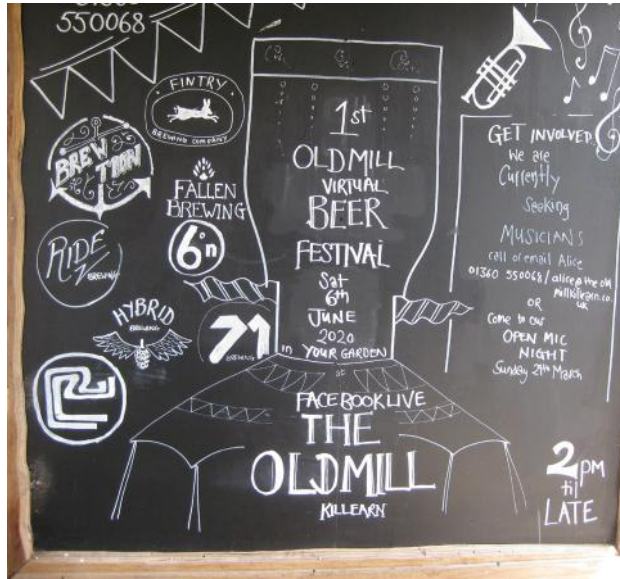 01360
550068
FINTRY
BREWING COMPANY
BREW
TOON
FALLEN
BREWING
6°n
RIDE
BREWING
HYBRID
BREWING
71
BREWING
1st
OLDMILL
VIRTUAL
BEER
FESTIVAL
Sat
6th
JUNE
2020
in YOUR GARDEN
at
FACEBOOK LIVE
THE
OLDMILL
KILLEARN
GET INVOLVED..
We are
Currently
Seeking
MUSICIANS
call or email Alice
01360 550068/alice@the old
millkillearn.co.
uk
OR
Come to our
OPEN MIC
NIGHT
Sunday 29th March
2PM
til
LATE